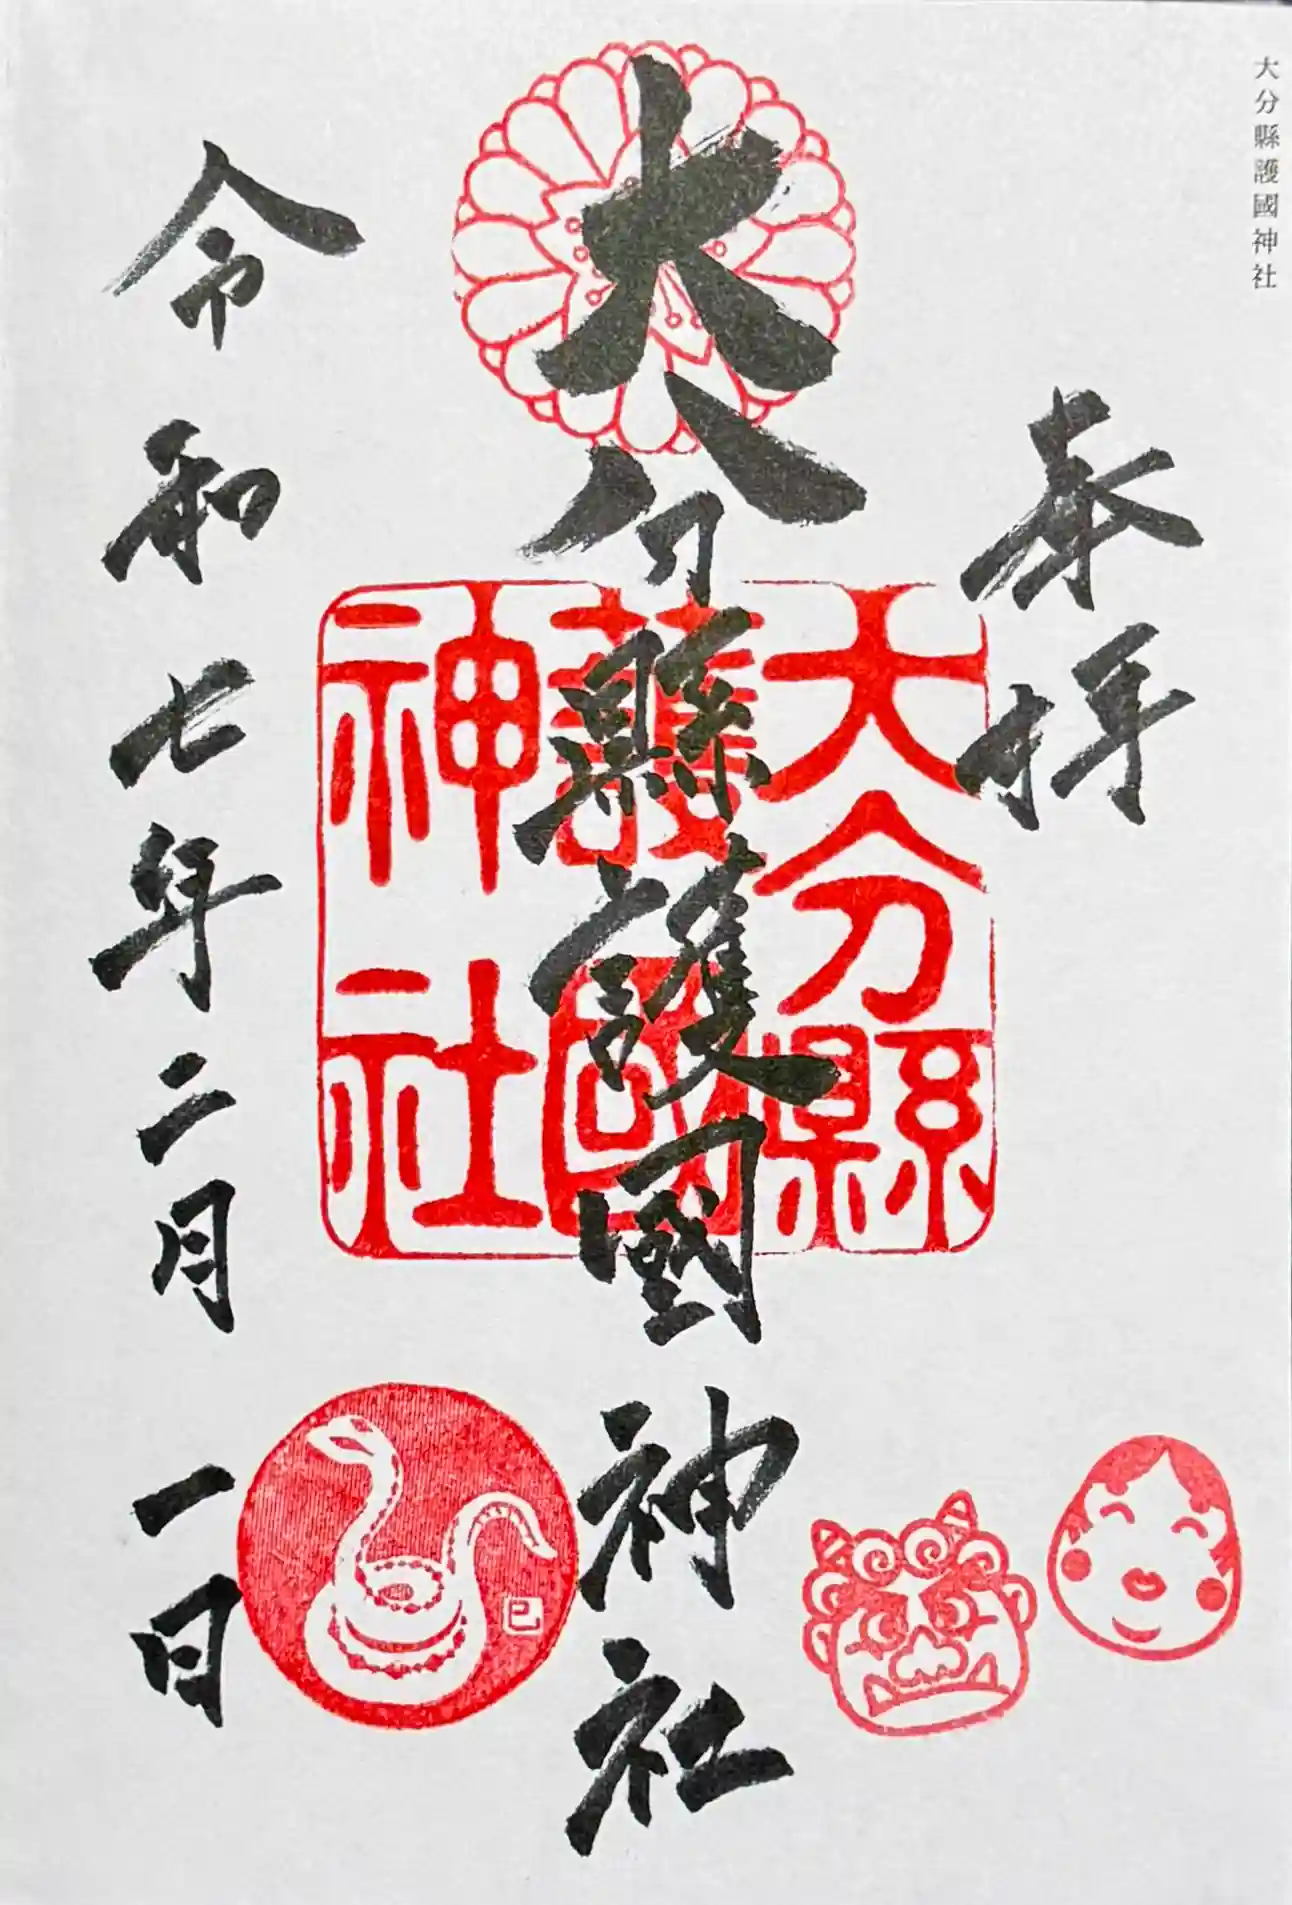 大分縣護國神社
奉拝
大分縣護國神社
大分縣
護國
神社
令和七年二月一日
巳